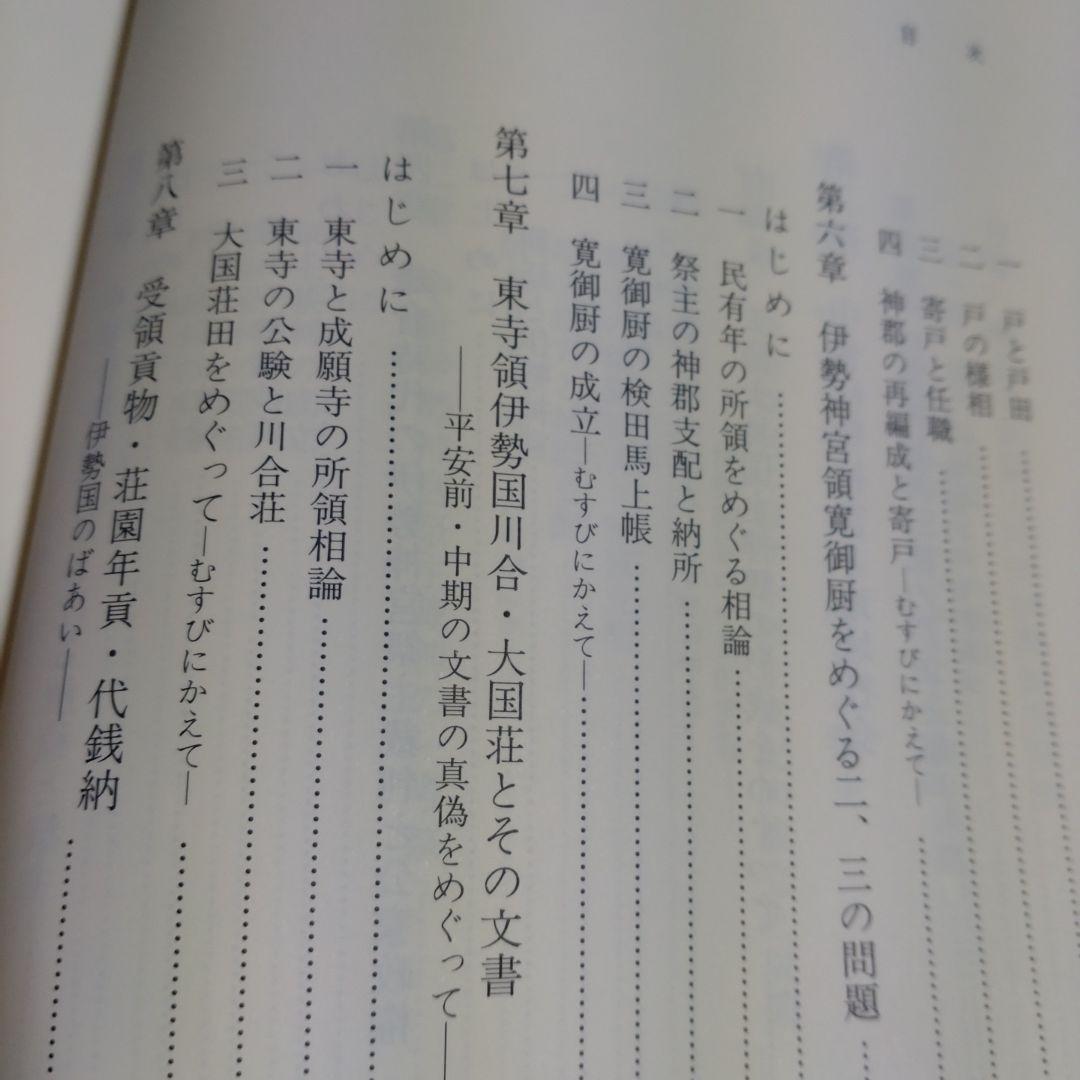 目次
一 戸と戸田
二 戸の様相
三 寄戸と任職
四 神郡の再編成と寄戸―むすびにかえて―
第六章 伊勢神宮領寛御厨をめぐる二、三の問題
はじめに
一 民有年の所領をめぐる相論
二 祭主の神郡支配と納所
三 寛御厨の検田馬上帳
四 寛御厨の成立―むすびにかえて―
第七章 東寺領伊勢国川合・大国荘とその文書
――平安前・中期の文書の真偽をめぐって――
はじめに
一 東寺と成願寺の所領相論
二 東寺の公験と川合荘
三 大国荘田をめぐって―むすびにかえて―
第八章 受領貢物・荘園年貢・代銭納
――伊勢国のばあい――